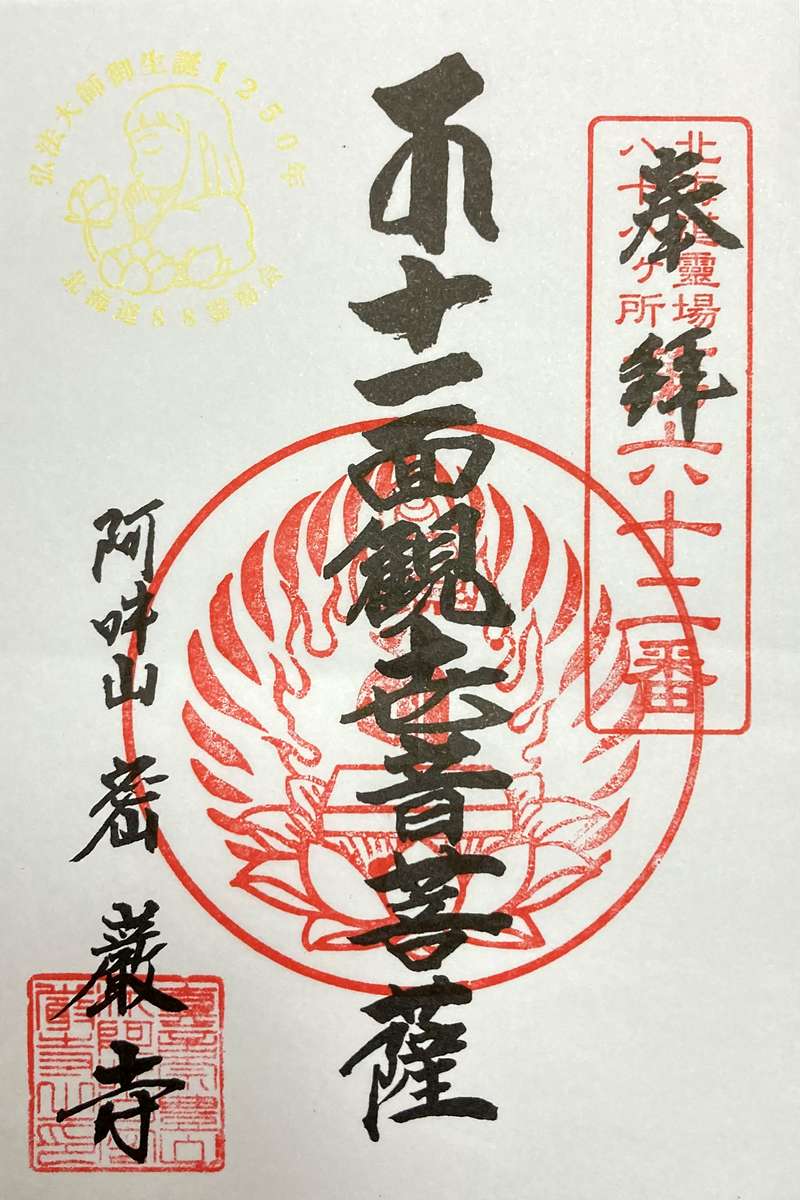 奉拝
北海道靈場
八十八ヶ所
第六十二番
十一面観世音菩薩
阿吽山 密厳寺
弘法大師御生誕1250年
北海道88霊場会